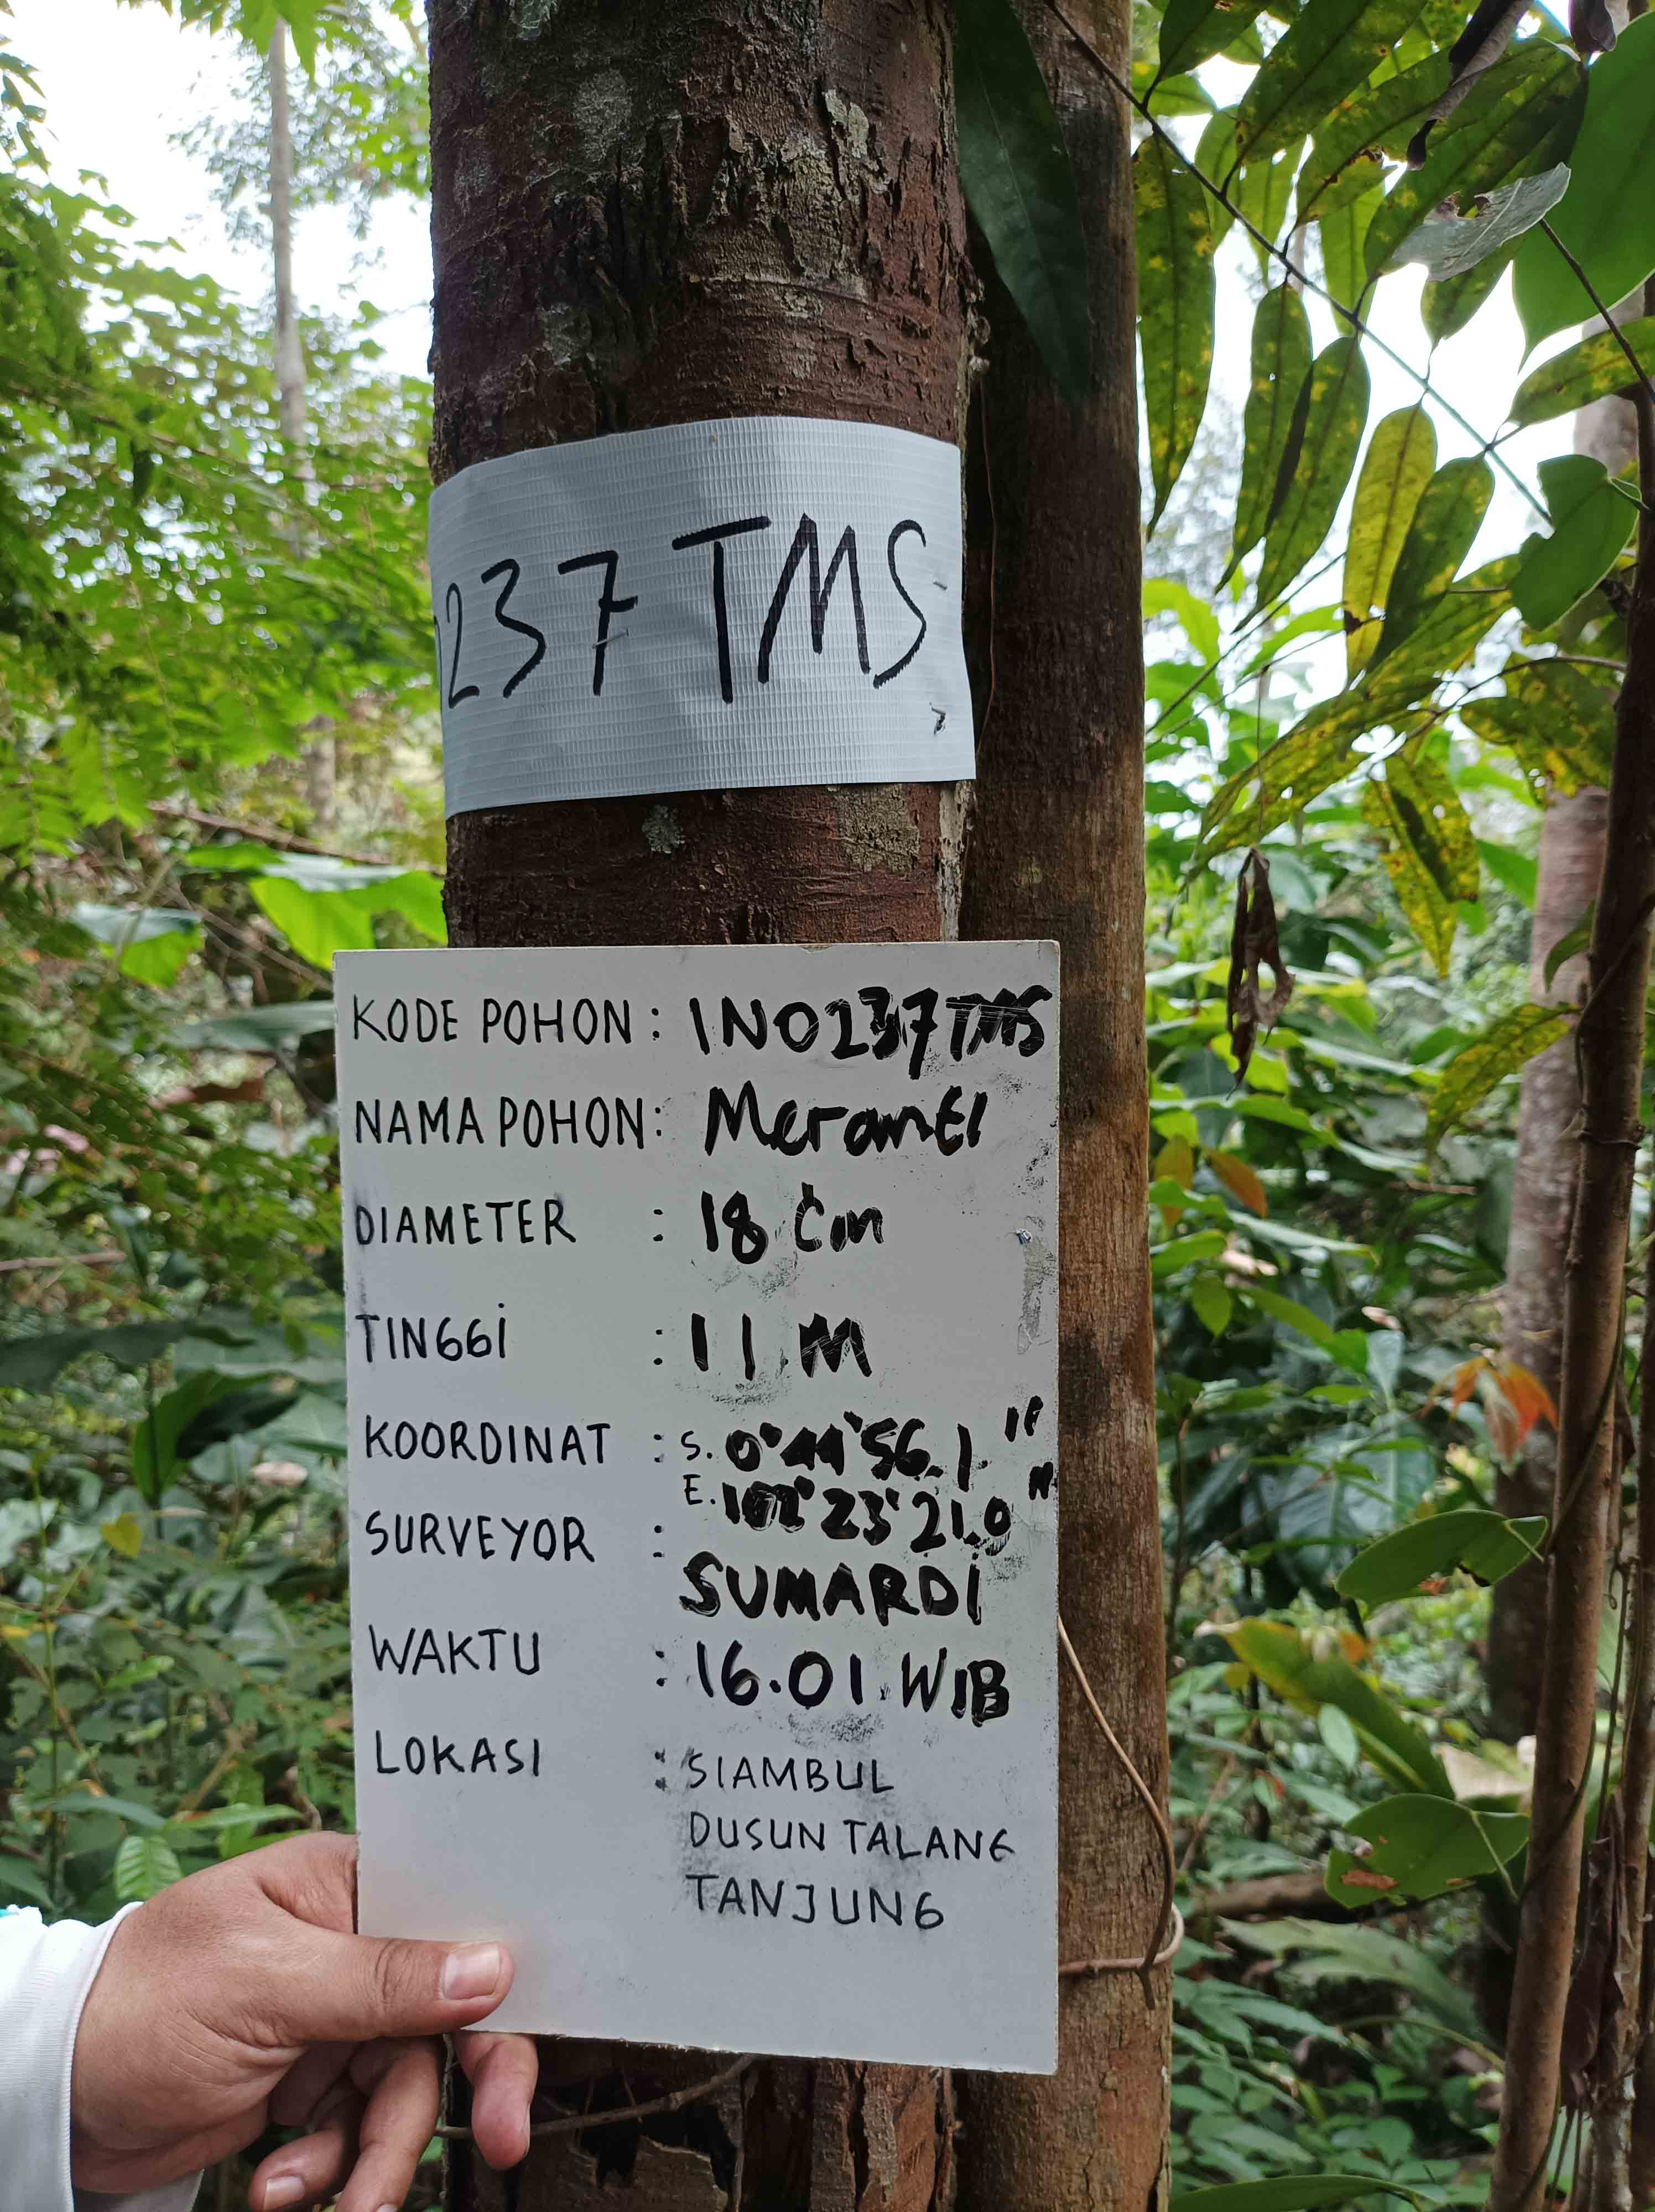 237 TMS
KODE POHON : INO237TMS
NAMA POHON : Meranti
DIAMETER : 18 Cm
TINGGi : 11 M
KOORDINAT : S. 0°44'56.1"
E. 102°23'21.0"
SURVEYOR : SUMARDi
WAKTU : 16.01.WIB
LOKASI : SIAMBUL
DUSUN TALANG
TANJUNG